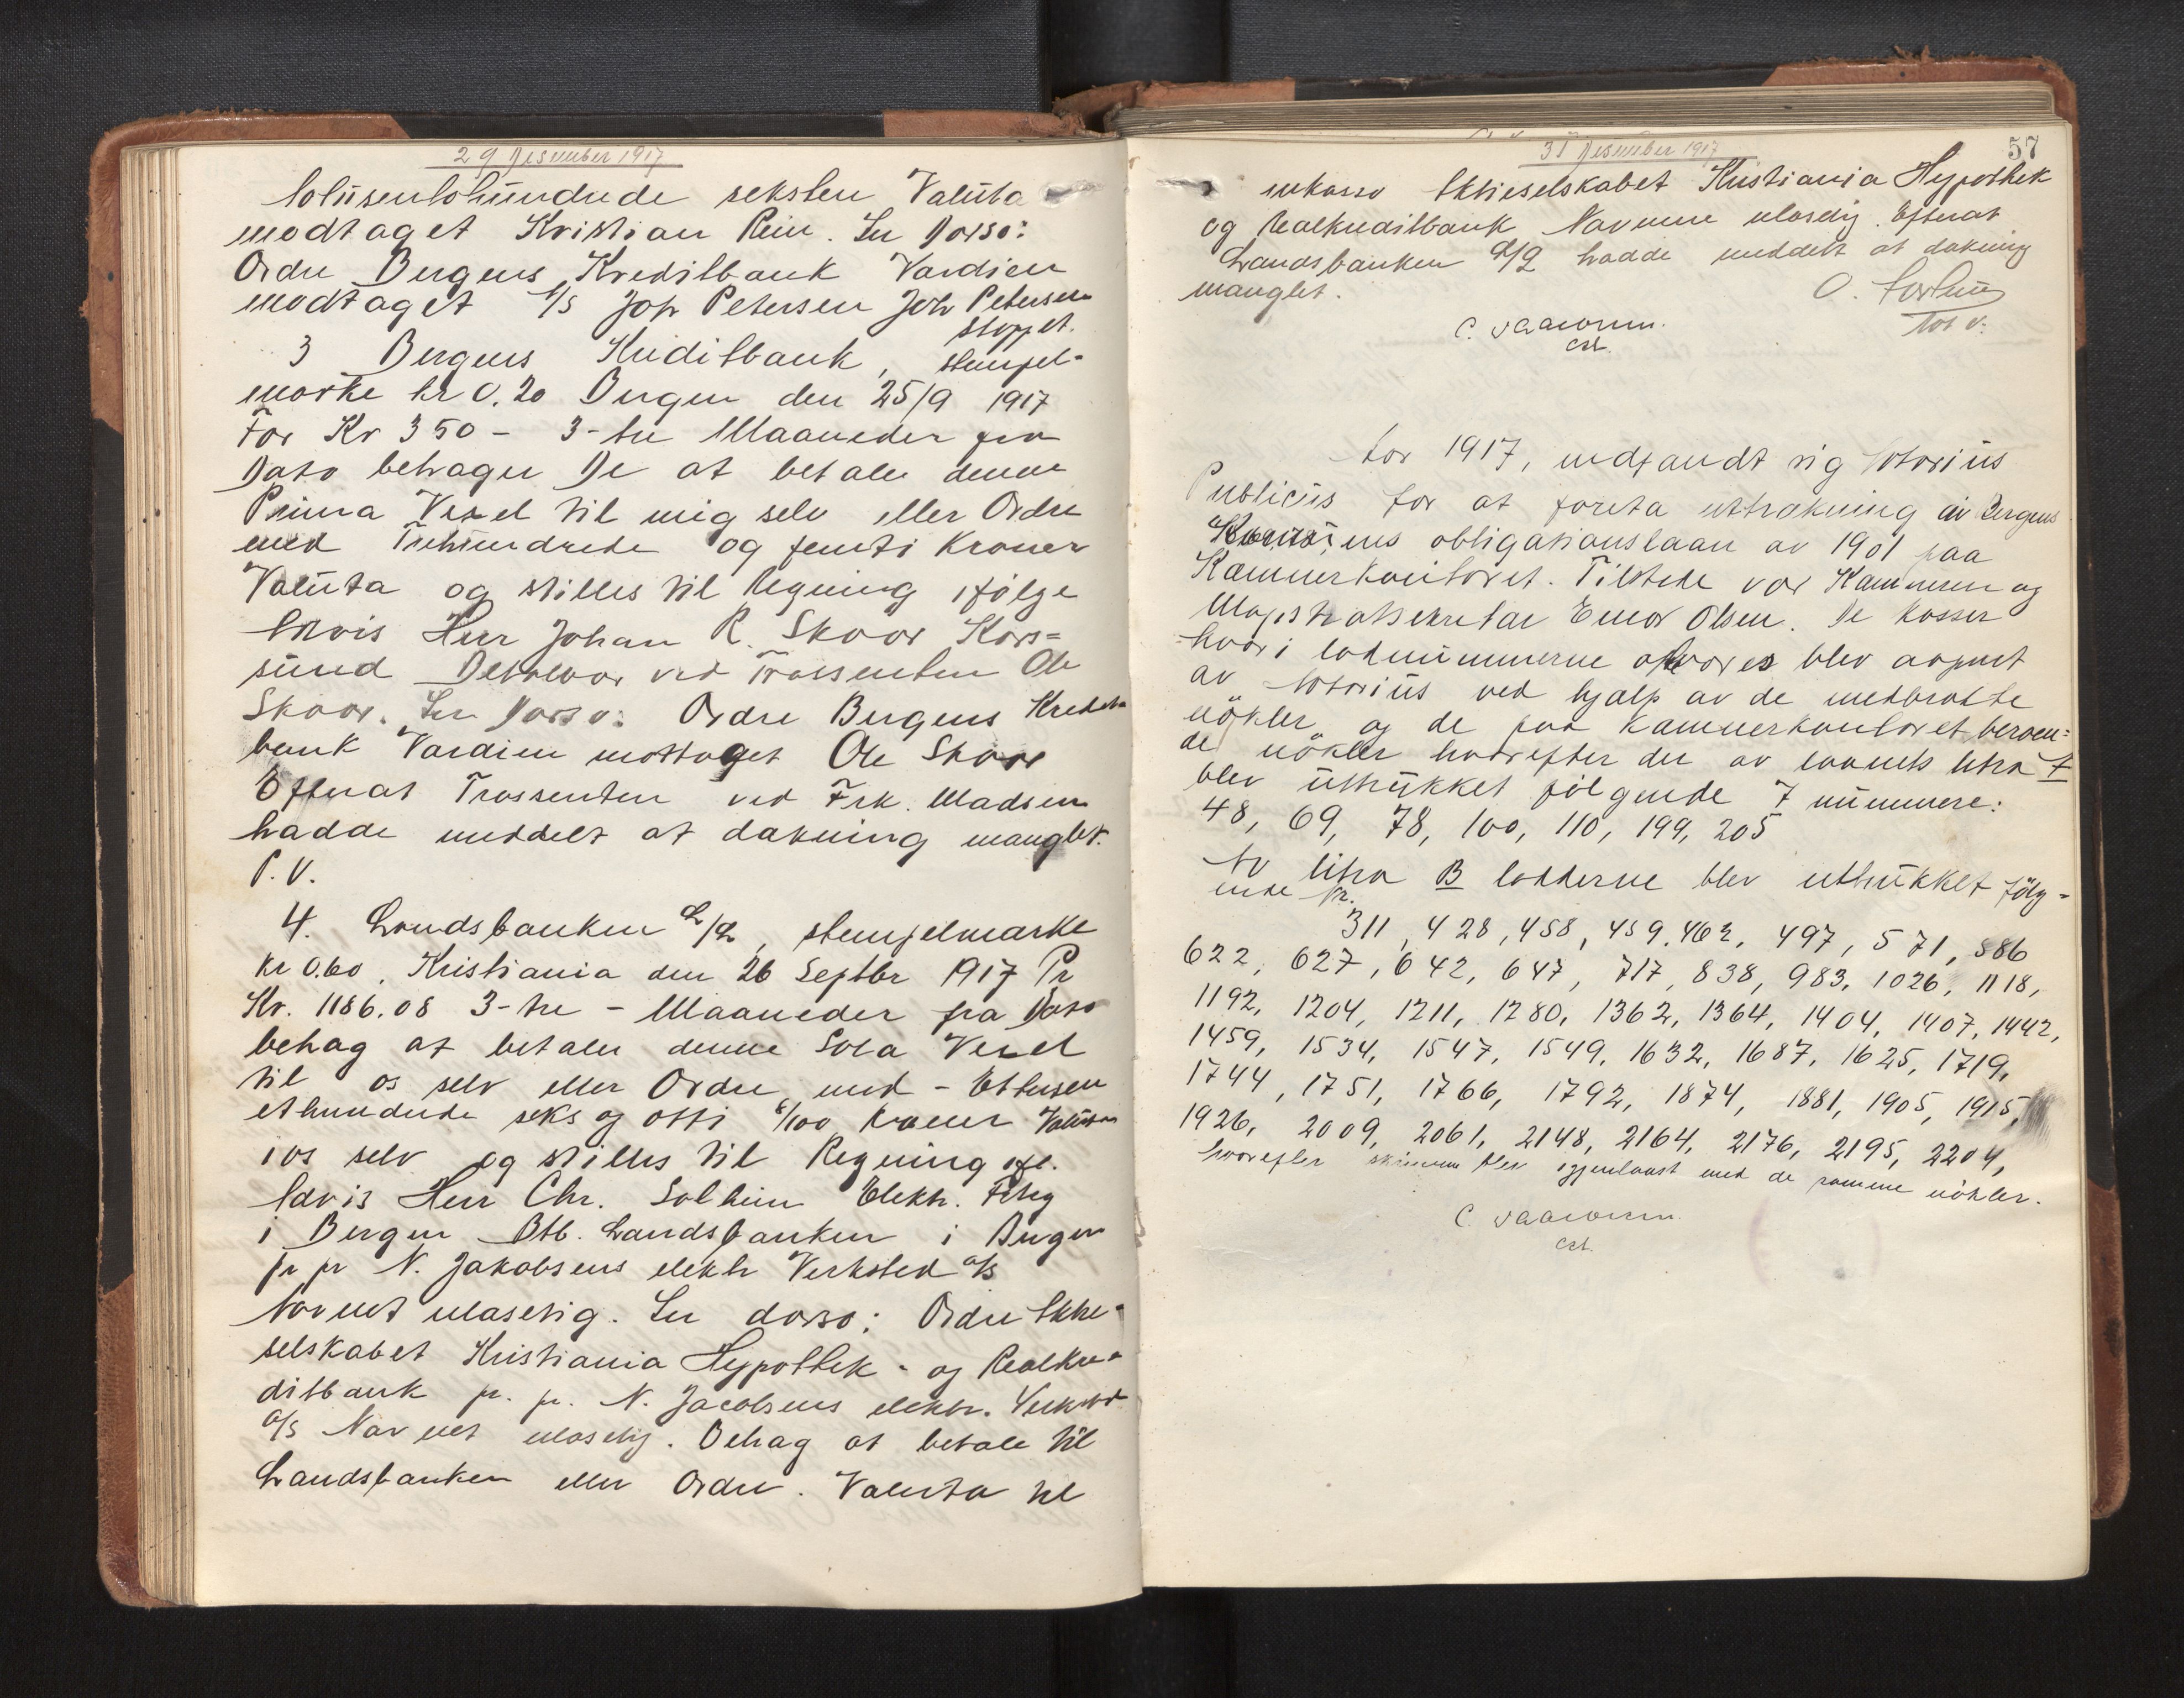 29 Desember 1917
totusentohundrede seksten Valuta
modtaget Kristian Rein. In Dorso:
Ordre Bergens Kreditbank Værdien
modtaget A/S Joh Petersen Joh Petersen
stoppet.
3 Bergens Kreditbank, stempel-
mærke kr 0.20 Bergen den 25/9 1917
For Kr 350 - 3 - tre Maaneder fra
Dato behager De at betale denne
Prima Vexel til mig selv eller Ordre
med Trehundrede og femti Kroner
Valuta og stilles til Regning ifølge
Advis Herr Johan R. Skaar Kors=
sund Betalbar ved Trassenten Ole
Skaar. In Dorso: Ordre Bergens Kredit-
bank Værdien mottaget Ole Skaar
Efterat Trassenten ved Frk. Madsen
hadde meddelt at dækning manglet.
P.V.
4. Landsbanken A/S, stempelmærke
kr 0.60, Kristiania den 26 Septbr 1917 Pr
Kr. 1186.08 3 - tre - Maaneder fra Dato
behag at betale denne Sola Vexel
til os selv eller Ordre med - Ettusen
ethundrede seks og otti 8/100 Kroner Valuta
i os selv og stilles til Regning ifl.
Advis Herr Chr. Solheim Elektr. Fctg
i Bergen Btb. Landsbanken i Bergen
pr pr N. Jakobsens elektr Verksted A/S
Navnet ulæselig. In dorso: Ordre Aktie-
selskabet Kristiania Hypothek - og Realkre-
ditbank pr. pr. N. Jacobsens elektr. Verksted
A/S Navnet ulæselig. Behag at betale til
Landsbanken eller Ordre. Valuta til
31 Desember 1917
57
inkasso Aktieselskabet Kristiania Hypothek
og Realkreditbank Navnene ulæselig. Efterat
Landsbanken A/S hadde meddelt at dækning
manglet.
C. Vaaronn.
cst.
Aar 1917, indfandt sig Notarius
Publicus for at foreta uttrækning av Bergens
Kommunes obligationslaan av 1901 paa
Kæmnerkontoret. Tilstede var Kæmneren og
Magistratsekretær Einar Olsen. De kasser
hvori lodnummerne opbevares blev aapnet
av Notarius ved hjælp av de medbrakte
nökler og de paa Kæmnerkontoret beroen=
de nökler hvorefter der av laanets litra A
blev uttrukket fölgende 7 nummere:
48, 69, 78, 100, 110, 199, 205
Av litra B lodderne blev uttrukket fölg-
ende Nr.
311, 428, 458, 459, 462, 497, 571, 586
622, 627, 642, 647, 717, 838, 983, 1026, 1118,
1192, 1204, 1211, 1280, 1362, 1364, 1404, 1407, 1442,
1459, 1534, 1547, 1549, 1632, 1687, 1625, 1719,
1744, 1751, 1766, 1792, 1874, 1881, 1905, 1915,
1926, 2009, 2061, 2148, 2164, 2176, 2195, 2204,
hvorefter skrinene blev igjenlaast med de samme nökler.
C. Vaaronn.
cst.